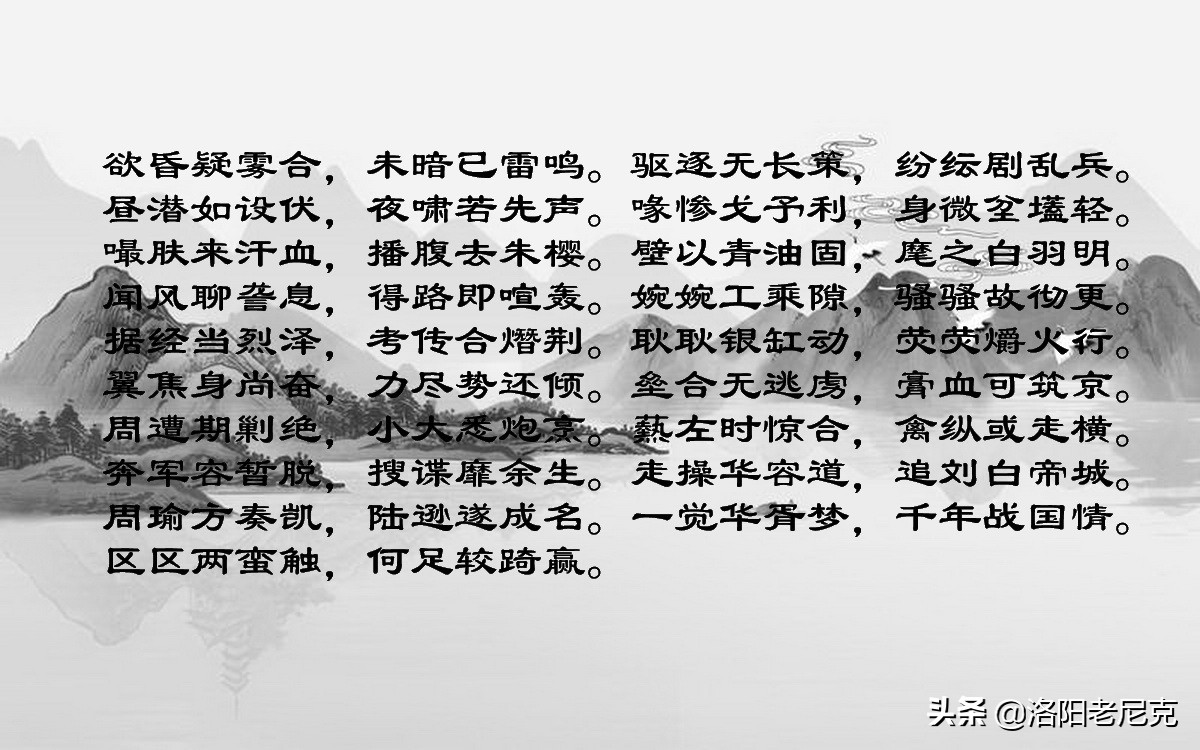 欲昏疑雾合，未暗已雷鸣。驱逐无长策，纷纭剧乱兵。
昼潜如设伏，夜啸若先声。喙惨戈予利，身微坌壒轻。
嘬肤来汗血，播腹去朱樱。壁以青油固，麾之白羽明。
闻风聊詟息，得路即喧轰。婉婉工乘隙，骚骚故彻更。
据经当烈泽，考传合熸荆。耿耿银缸动，荧荧爝火行。
翼焦身尚奋，力尽势还倾。垒合无逃虏，膏血可筑京。
周遭期剿绝，小大悉炮烹。爇左时惊合，禽纵或走横。
奔军容暂脱，搜谍靡余生。走操华容道，追刘白帝城。
周瑜方奏凯，陆逊遂成名。一觉华胥梦，千年战国情。
区区两蛮触，何足较踦赢。
头条 @洛阳老尼克